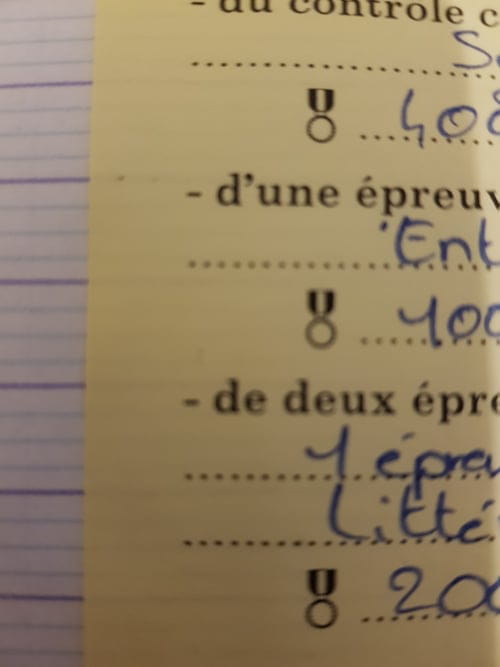 - du contrôle c
S
408
- d'une épreuv
Ent
100
- de deux épre
1 épreu
Litté
200